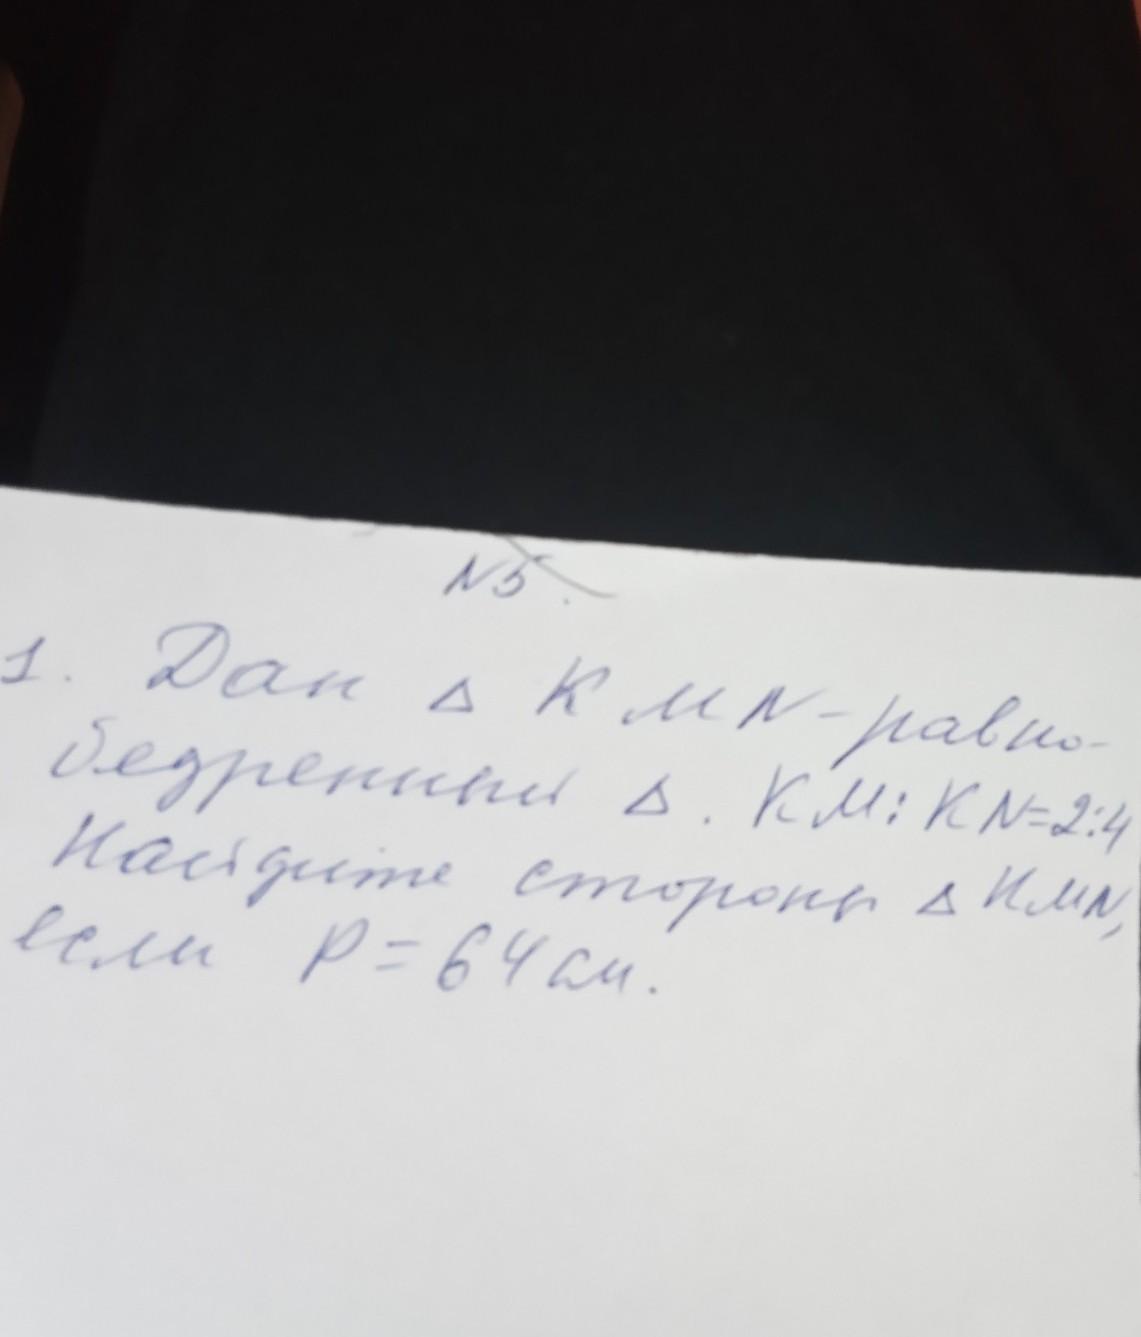 N5.
1. Дан Δ KMN - равно-
бедренный Δ. KM:KN=2:4
Найдите стороны Δ KMN,
если P=64см.